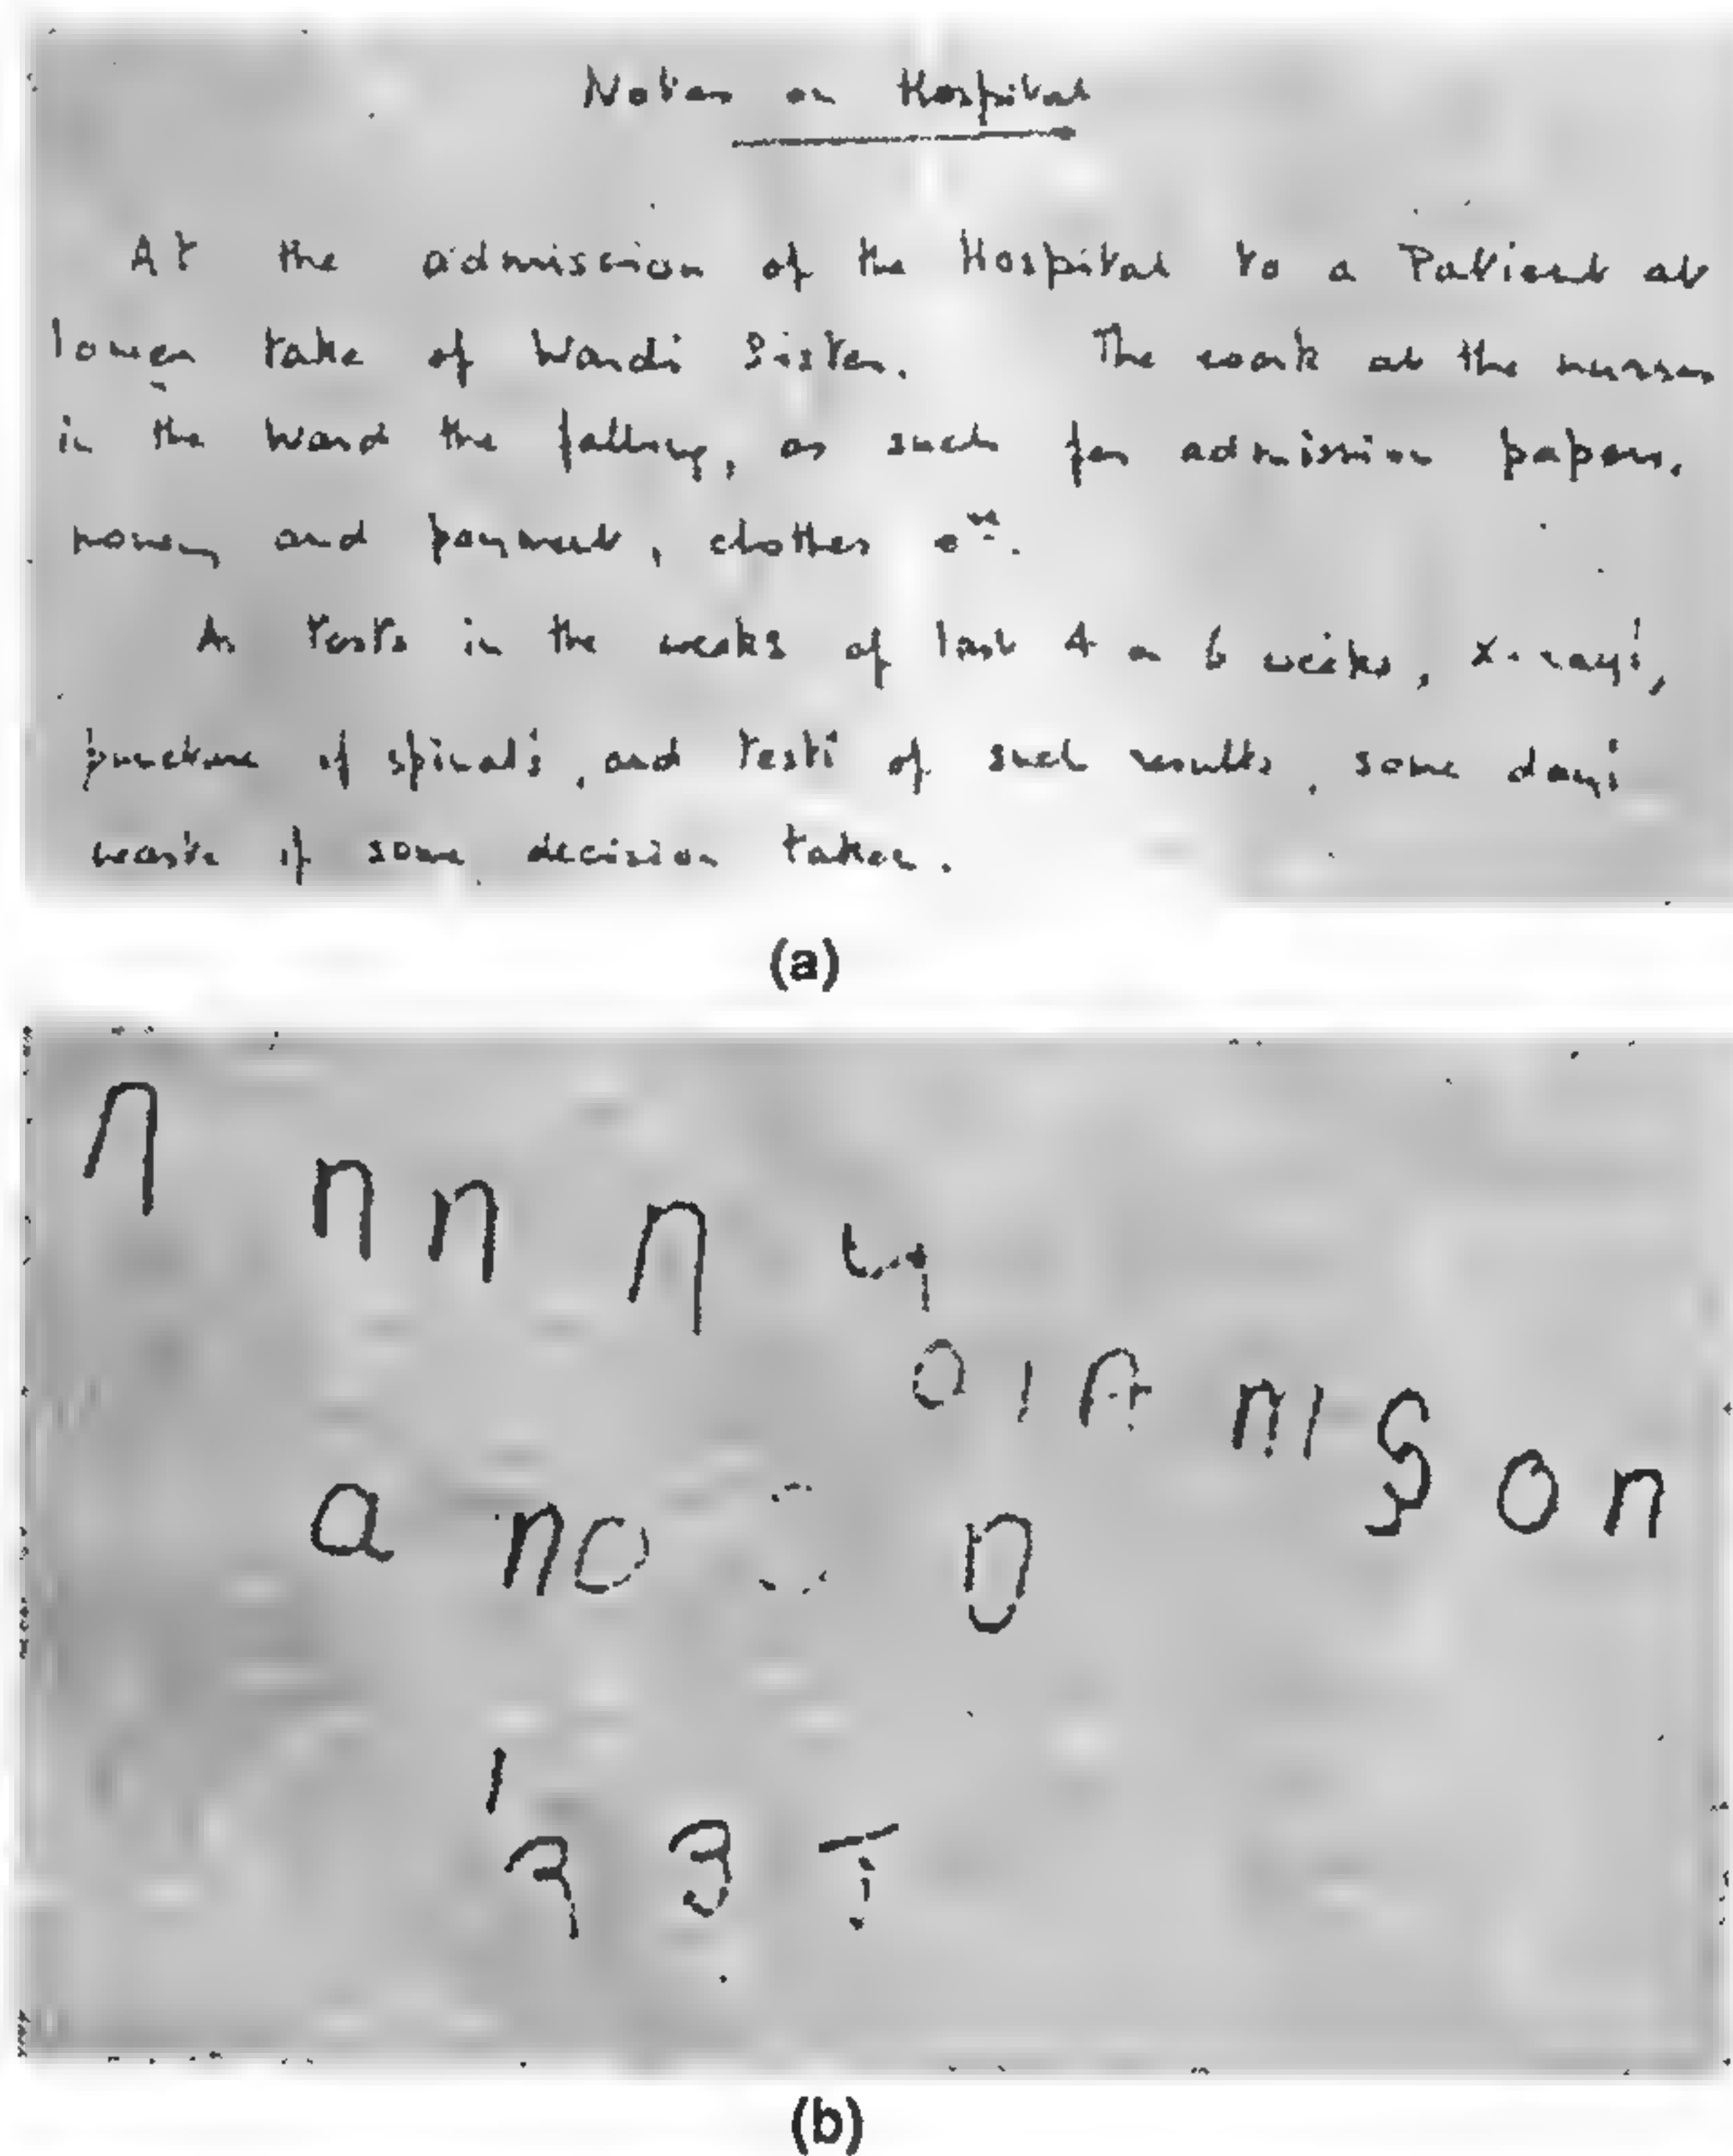 Notes on Hospital
At the admission of the Hospital to a Patient at
lower take of Wards Sister. The work at the nurses
in the Ward the falling, as such for admission papers,
money and payment, clothes
As tests in the weeks of last 4 or 6 weeks, X-rays,
puncture if spinals, and tests of such results, some days
waste if some decision taken.
(a)
n n n n
O I A m I S o n
a n o D
1
3 T
(b)